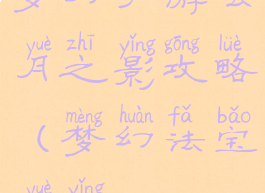 yuè zhī yǐng gōng lüè
月之影攻略
mèng huàn fǎ bǎo
（梦幻法宝
yuè yǐng